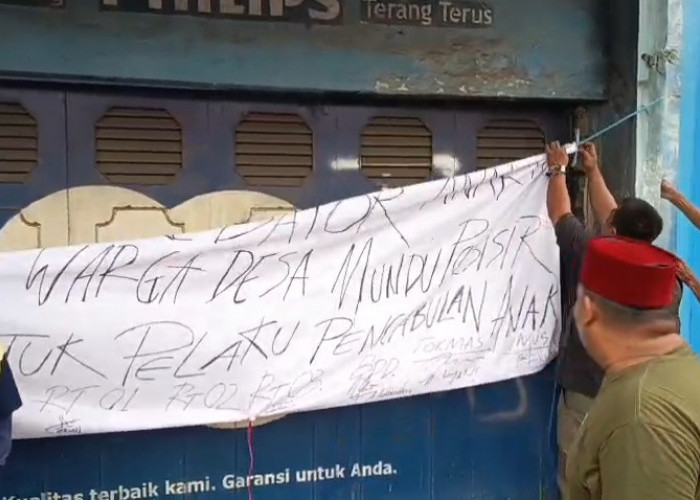 PHILIPS
Terang Terus
WARGA DESA MUNDU PESISIR
TUK PELAKU PENCABULAN ANAK
RT 01 RT 02 RT 03 BPD TOKMAS
Kualitas terbaik kami. Garansi untuk Anda.